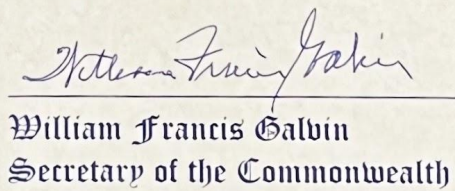 William Francis Galvin
William Francis Galvin
Secretary of the Commonwealth